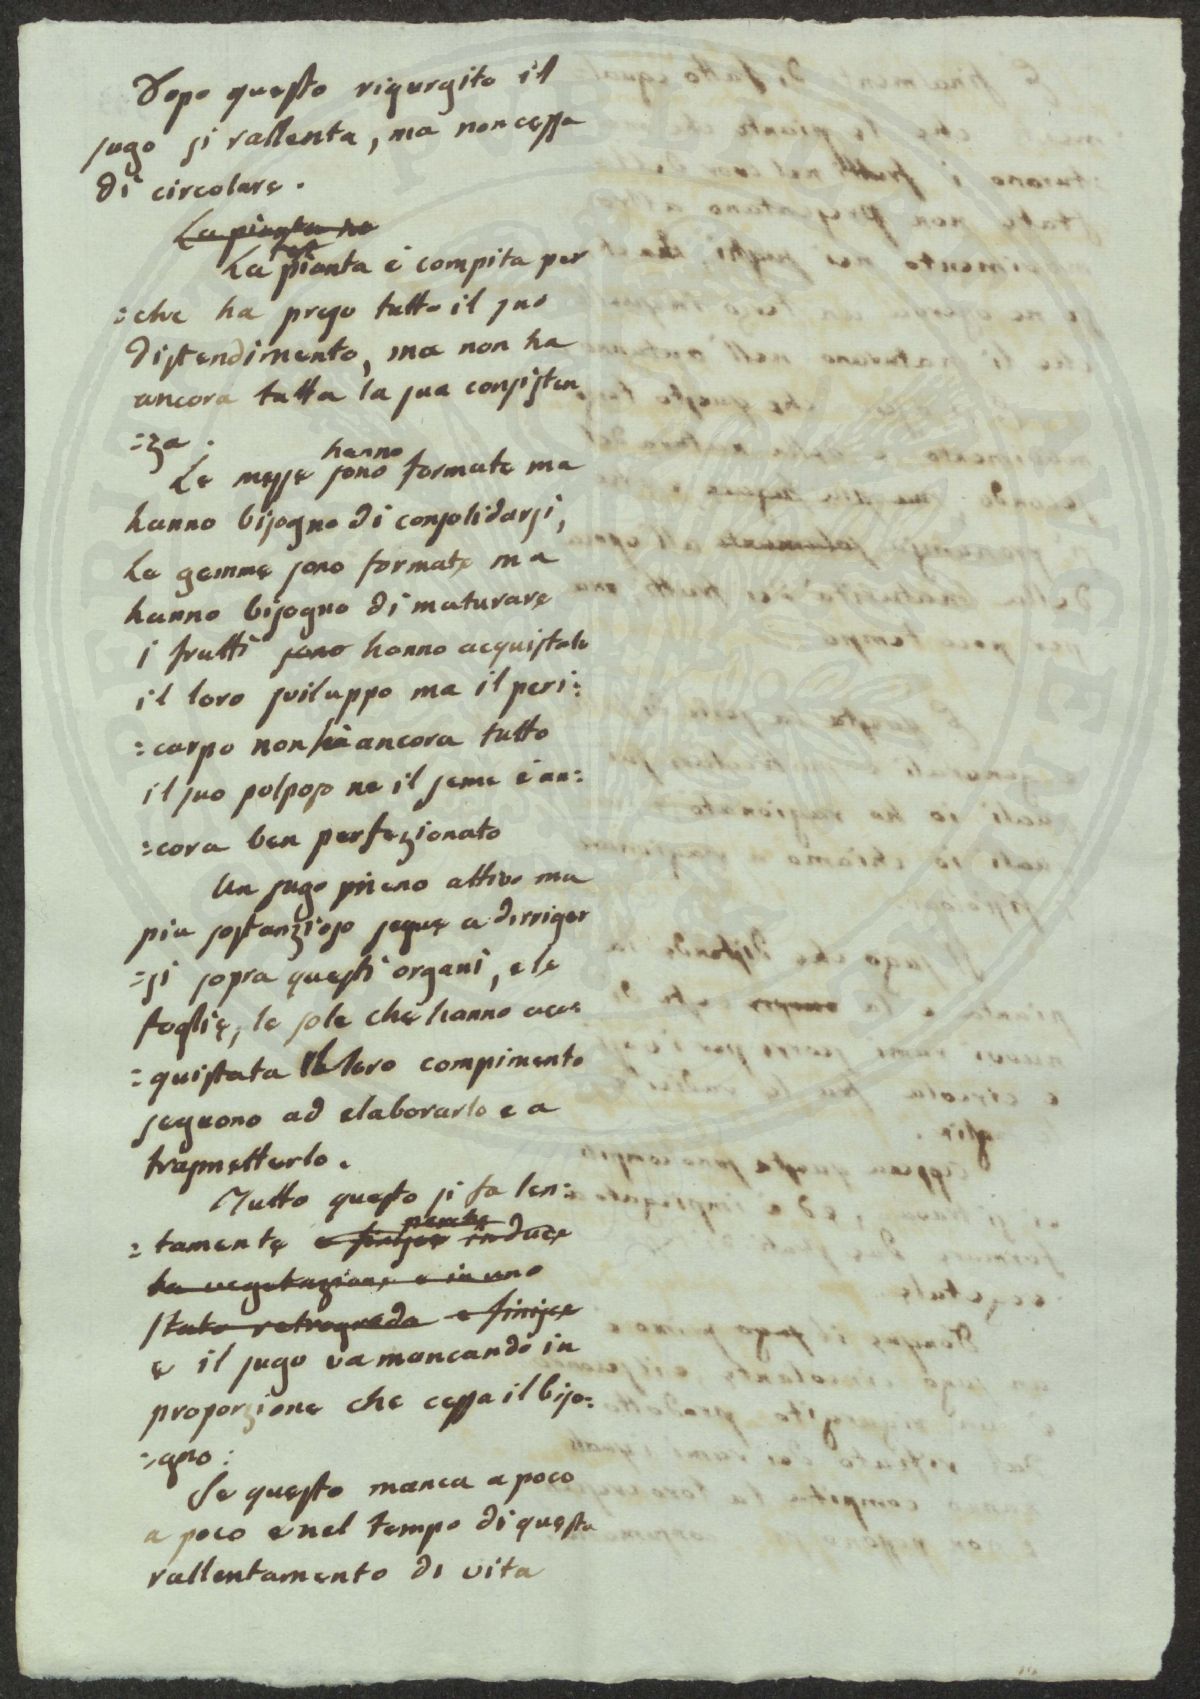 Dopo questo rigurgito il
sugo si rallenta, ma non cessa
di circolare.
La pianta ha
La pianta è compita per
=che ha preso tutto il suo
distendimento, ma non ha
ancora tutta la sua consisten
=za.
hanno
Le messe sono formate ma
hanno bisogno di consolidarsi,
Le gemme sono formate ma
hanno bisogno di maturare
i frutti sono hanno acquistato
il loro sviluppo ma il peri=
=carpo non ha ancora tutto
il suo polposo ne il seme è an=
=cora ben perfezionato
Un sugo meno attivo ma
piu sostanzioso segue a dirriger
=si sopra questi organi, e le
foglie, le sole che hanno acc=
=quistata il loro compimento
seguono ad elaborarlo e a
trasmetterlo.
Tutto questo si fa len=
perche
=tamente e finisce induce
la vegetazione e in uno
stato retrograda e finisce
e il sugo va mancando in
proporzione che cessa il biso=
=gno:
Se questo manca a poco
a poco e nel tempo di questo
rallentamento di vita